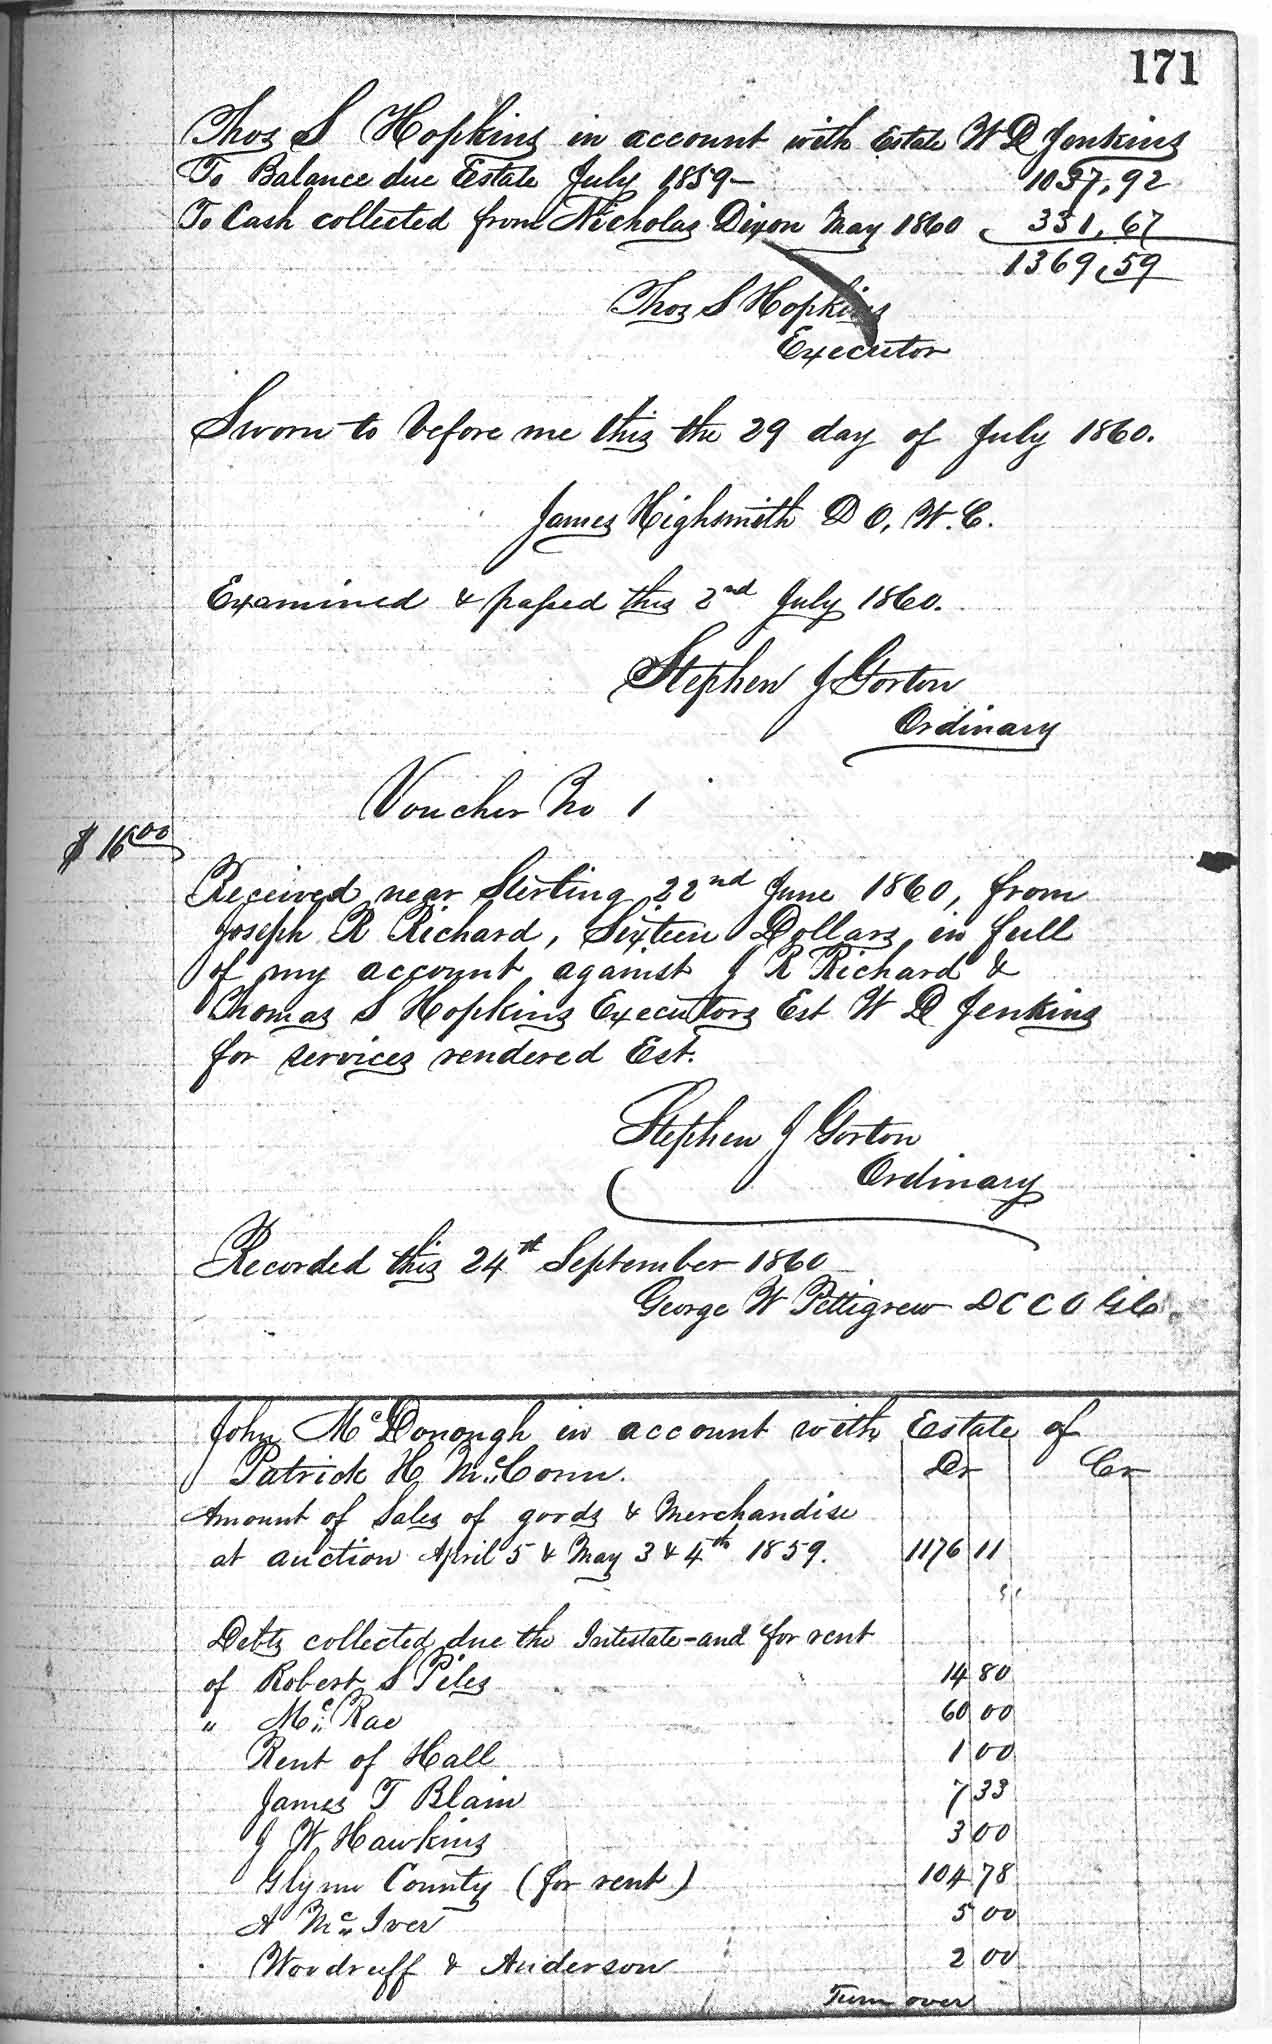 171
Thos S Hopkins in account with Estate W D Jenkins
To Balance due Estate July 1859– 1037,92
To Cash collected from Nicholas Dixon May 1860 331,67
1369,59
Thos S Hopkins
Executor
Sworn to before me this the 29 day of July 1860.
James Highsmith D O, W. C.
Examined & passed this 2nd July 1860.
Stephen J Gorton
Ordinary
Voucher No 1
$16 00
Received near Sterling 22nd June 1860, from
Joseph R Richard, Sixteen Dollars in full
of my account against J R Richard &
Thomas S Hopkins Executors Est W D Jenkins
for services rendered Est.
Stephen J Gorton
Ordinary
Recorded this 24th September 1860
George W Pettigrew D C C O G C.
John McDonough in account with Estate of
Patrick H McConn. Dr Cr
Amount of Sales of goods & Merchandise
at auction April 5 & May 3 & 4th 1859. 1176 11
Debts collected due the Intestate-and for rent
of Robert S Piles 14 80
" McRae 60 00
Rent of Hall 1 00
James T Blain 7 33
J W Hawkins 3 00
Glynn County (for rent) 104 78
A McIver 5 00
Woodruff & Anderson 2 00
Turn over